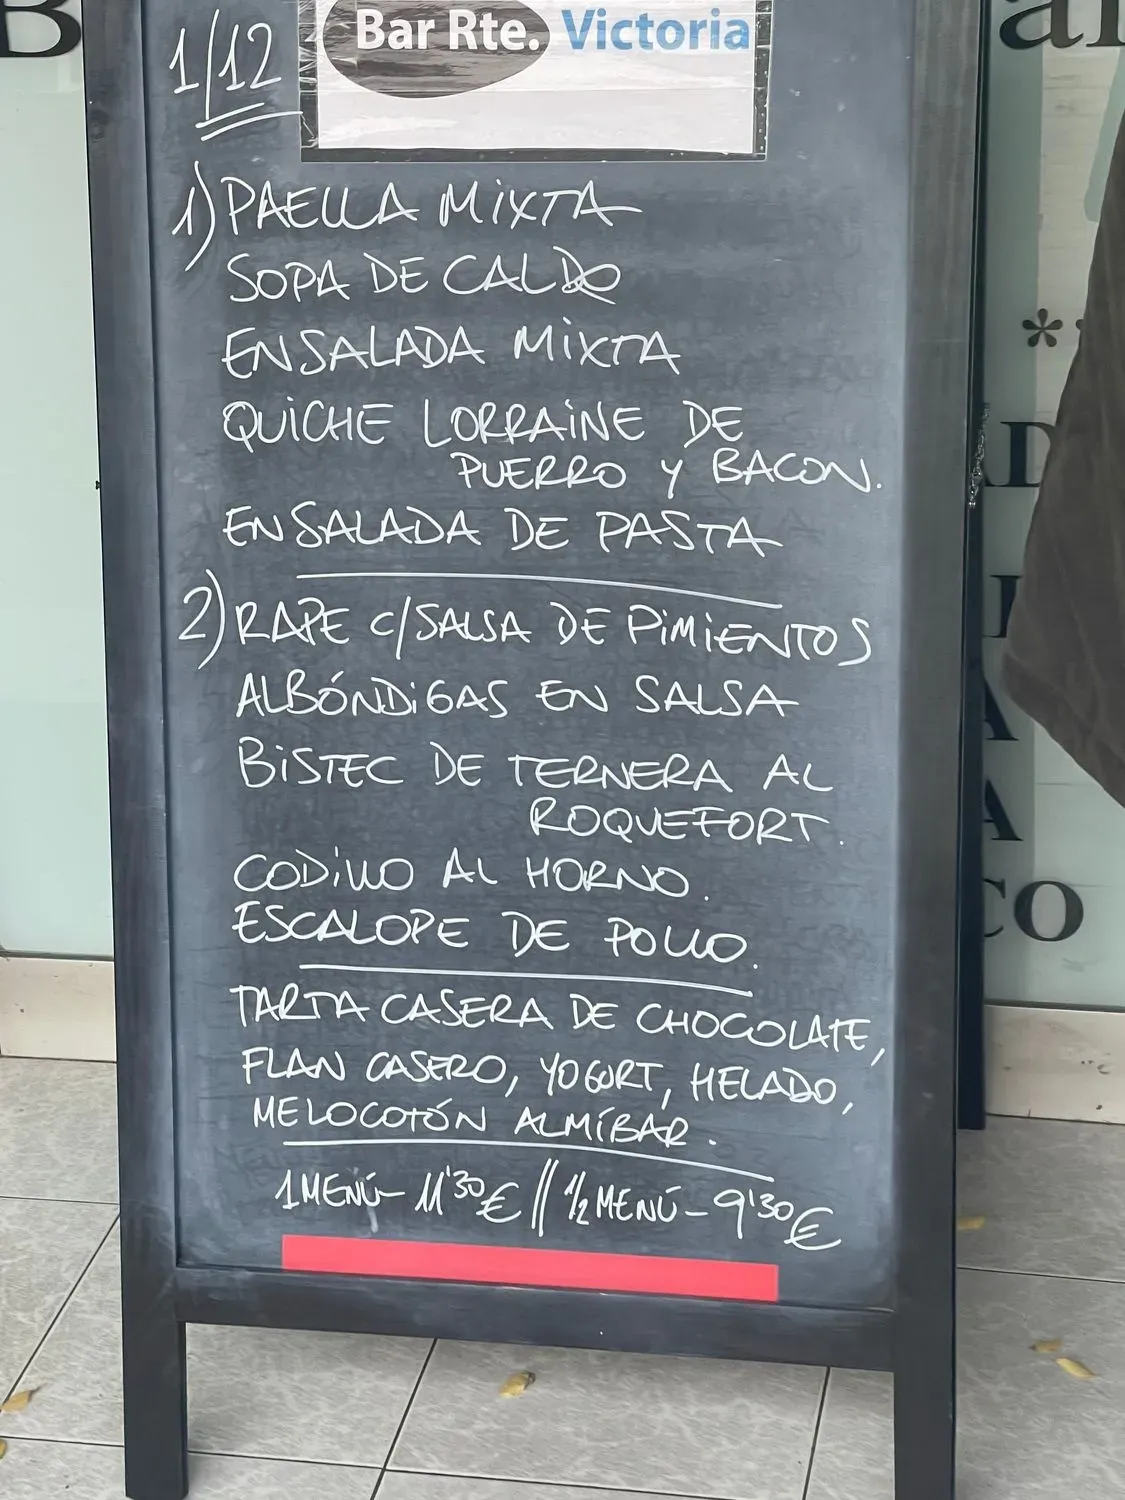 Bar Rte. Victoria
1/12
1) PAELLA MIXTA
SOPA DE CALDO
ENSALADA MIXTA
QUICHE LORRAINE DE
PUERRO Y BACON.
ENSALADA DE PASTA
2) RAPE C/SALSA DE PIMIENTOS
ALBÓNDIGAS EN SALSA
BISTEC DE TERNERA AL
ROQUEFORT.
CODILLO AL HORNO.
ESCALOPE DE POLLO.
TARTA CASERA DE CHOCOLATE,
FLAN CASERO, YOGURT, HELADO,
MELOCOTÓN ALMÍBAR.
1 MENÚ- 11'30€ // 1/2 MENÚ - 9'30€